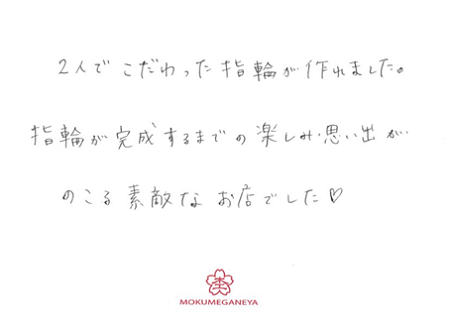 2人でこだわった指輪が作れました。
指輪が完成するまでの楽しみ・思い出が
のこる素敵なお店でした♡
MOKUMEGANEYA